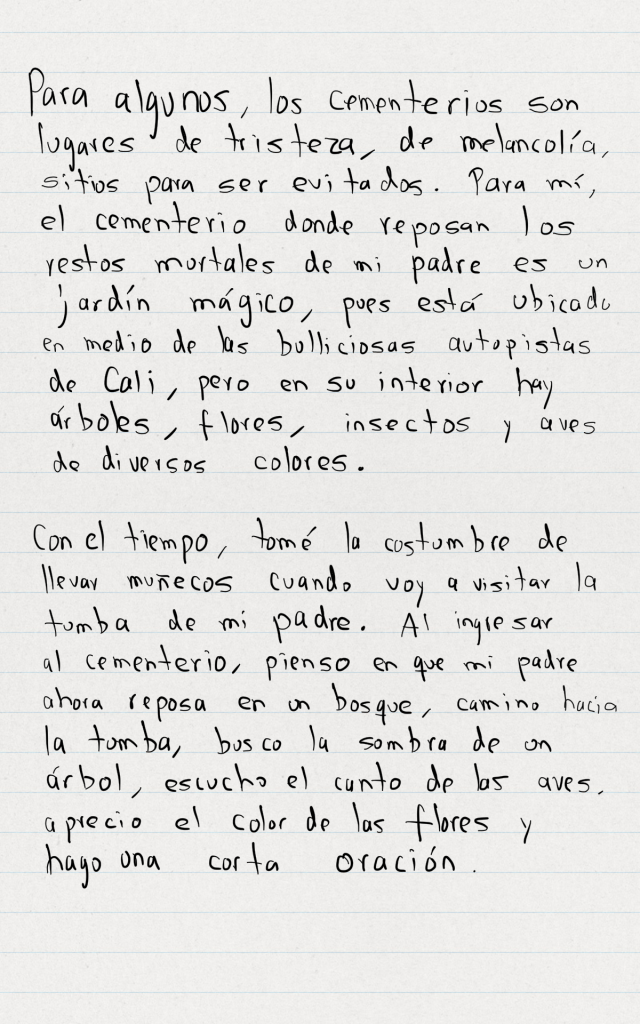 Para algunos, los cementerios son
lugares de tristeza, de melancolía,
sitios para ser evitados. Para mí,
el cementerio donde reposan los
restos mortales de mi padre es un
jardín mágico, pues está ubicado
en medio de las bulliciosas autopistas
de Cali, pero en su interior hay
árboles, flores, insectos y aves
de diversos colores.
Con el tiempo, tomé la costumbre de
llevar muñecos cuando voy a visitar la
tumba de mi padre. Al ingresar
al cementerio, pienso en que mi padre
ahora reposa en un bosque, camino hacia
la tumba, busco la sombra de un
árbol, escucho el canto de las aves,
aprecio el color de las flores y
hago una corta oración.